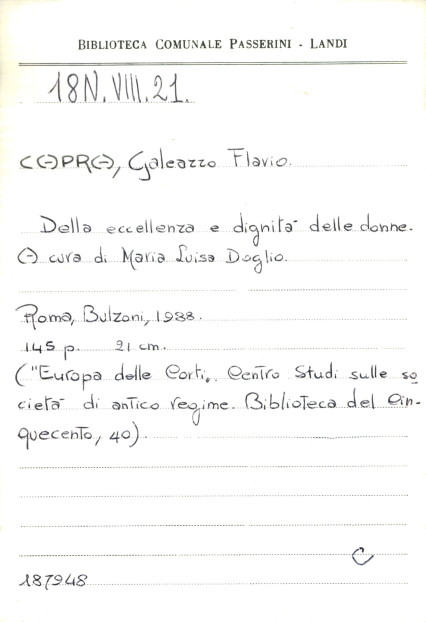 BIBLIOTECA COMUNALE PASSERINI - LANDI
18N.VIII.21.
CAPRA, Galeazzo Flavio.
Della eccellenza e dignità delle donne.
A cura di Maria Luisa Doglio.
Roma, Bulzoni, 1988.
145 p. 21 cm.
("Europa delle Corti. Centro Studi sulle so
cietà di antico regime. Biblioteca del Cin-
quecento, 40).
C
187948